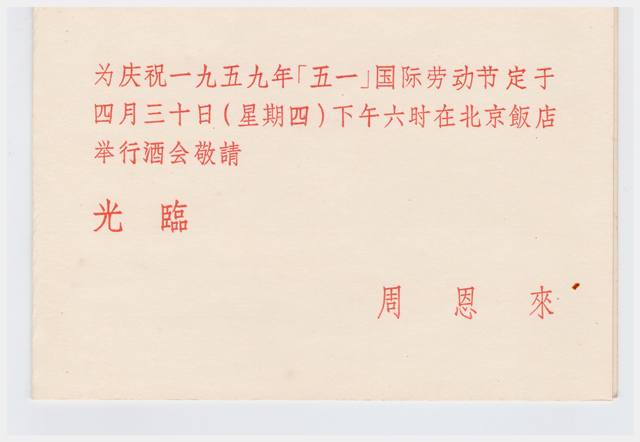 为庆祝一九五九年「五一」国际劳动节定于
四月三十日(星期四)下午六时在北京飯店
举行酒会敬請
光臨
周恩來